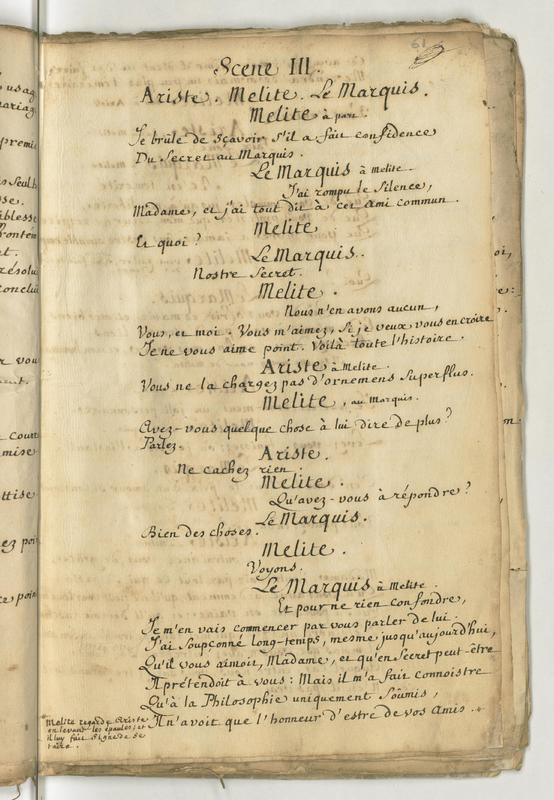 61
Scene III.
Ariste. Melite. Le Marquis.
Melite à part.
Je brûle de sçavoir s'il a fait confidence
Du Secret au Marquis.
Le Marquis à Melite.
J'ai rompu le Silence,
Madame, et j'ai tout dit à cet Ami commun.
Melite
Et quoi?
Le Marquis.
Nostre Secret.
Melite.
Nous n'en avons aucun,
Vous, et moi. Vous m'aimez, Si je veux vous en croire
Je ne vous aime point. Voilà toute l'histoire.
Ariste à Melite.
Vous ne la chargez pas d'ornemens Superflus.
Melite, au Marquis.
Avez-vous quelque chose à lui dire de plus?
Parlez.
Ariste.
Ne cachez rien.
Melite.
Qu'avez-vous à répondre?
Le Marquis.
Bien des choses.
Melite.
Voyons.
Le Marquis à Melite.
Et pour ne rien confondre,
Je m'en vais commencer par vous parler de lui.
J'ai Soupçonné long-temps, mesme jusqu'aujourd'hui,
Qu'il vous aimoit, Madame, et qu'en Secret peut-être
Il prétendoit à vous: Mais il m'a fait connoistre
Qu'à la Philosophie uniquement Soûmis,
Il n'avoit que l'honneur d'estre de vos Amis.
Melite regarde Ariste
en levant les épaules, et
il luy fait Signe de Se
taire.